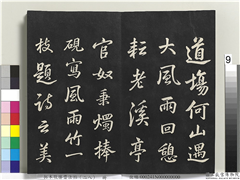 道場何山遇
大風雨回憩
耘老溪亭
官奴秉燭捧
硯寫風雨竹一
枝題詩云美
9